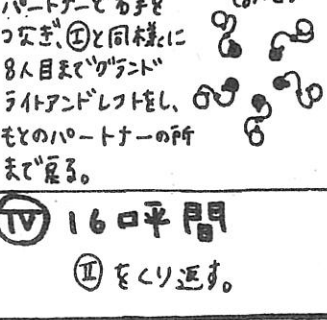 パートナーと右手を
つなぎ、Ⅰと同様に
8人目までグランド
ライトアンドレフトをし、
もとのパートナーの所
まで戻る。
Ⅳ 16呼間
Ⅱをくり返す。